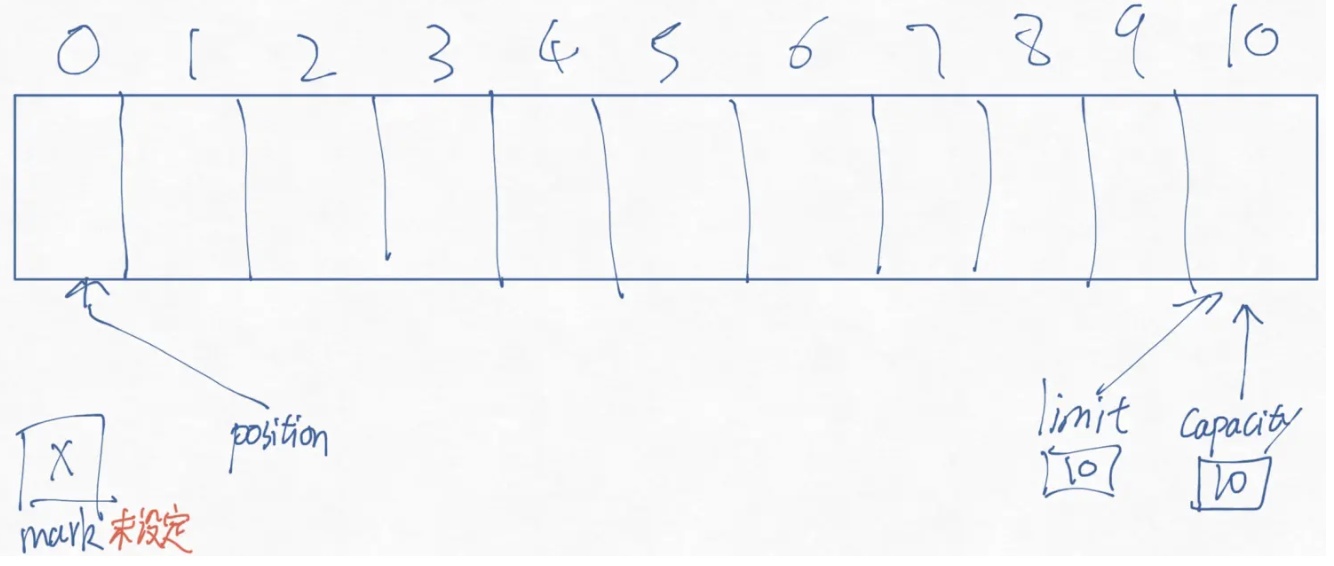 0 1 2 3 4 5 6 7 8 9 10
position
limit
capacity
10
10
X
mark 未设定